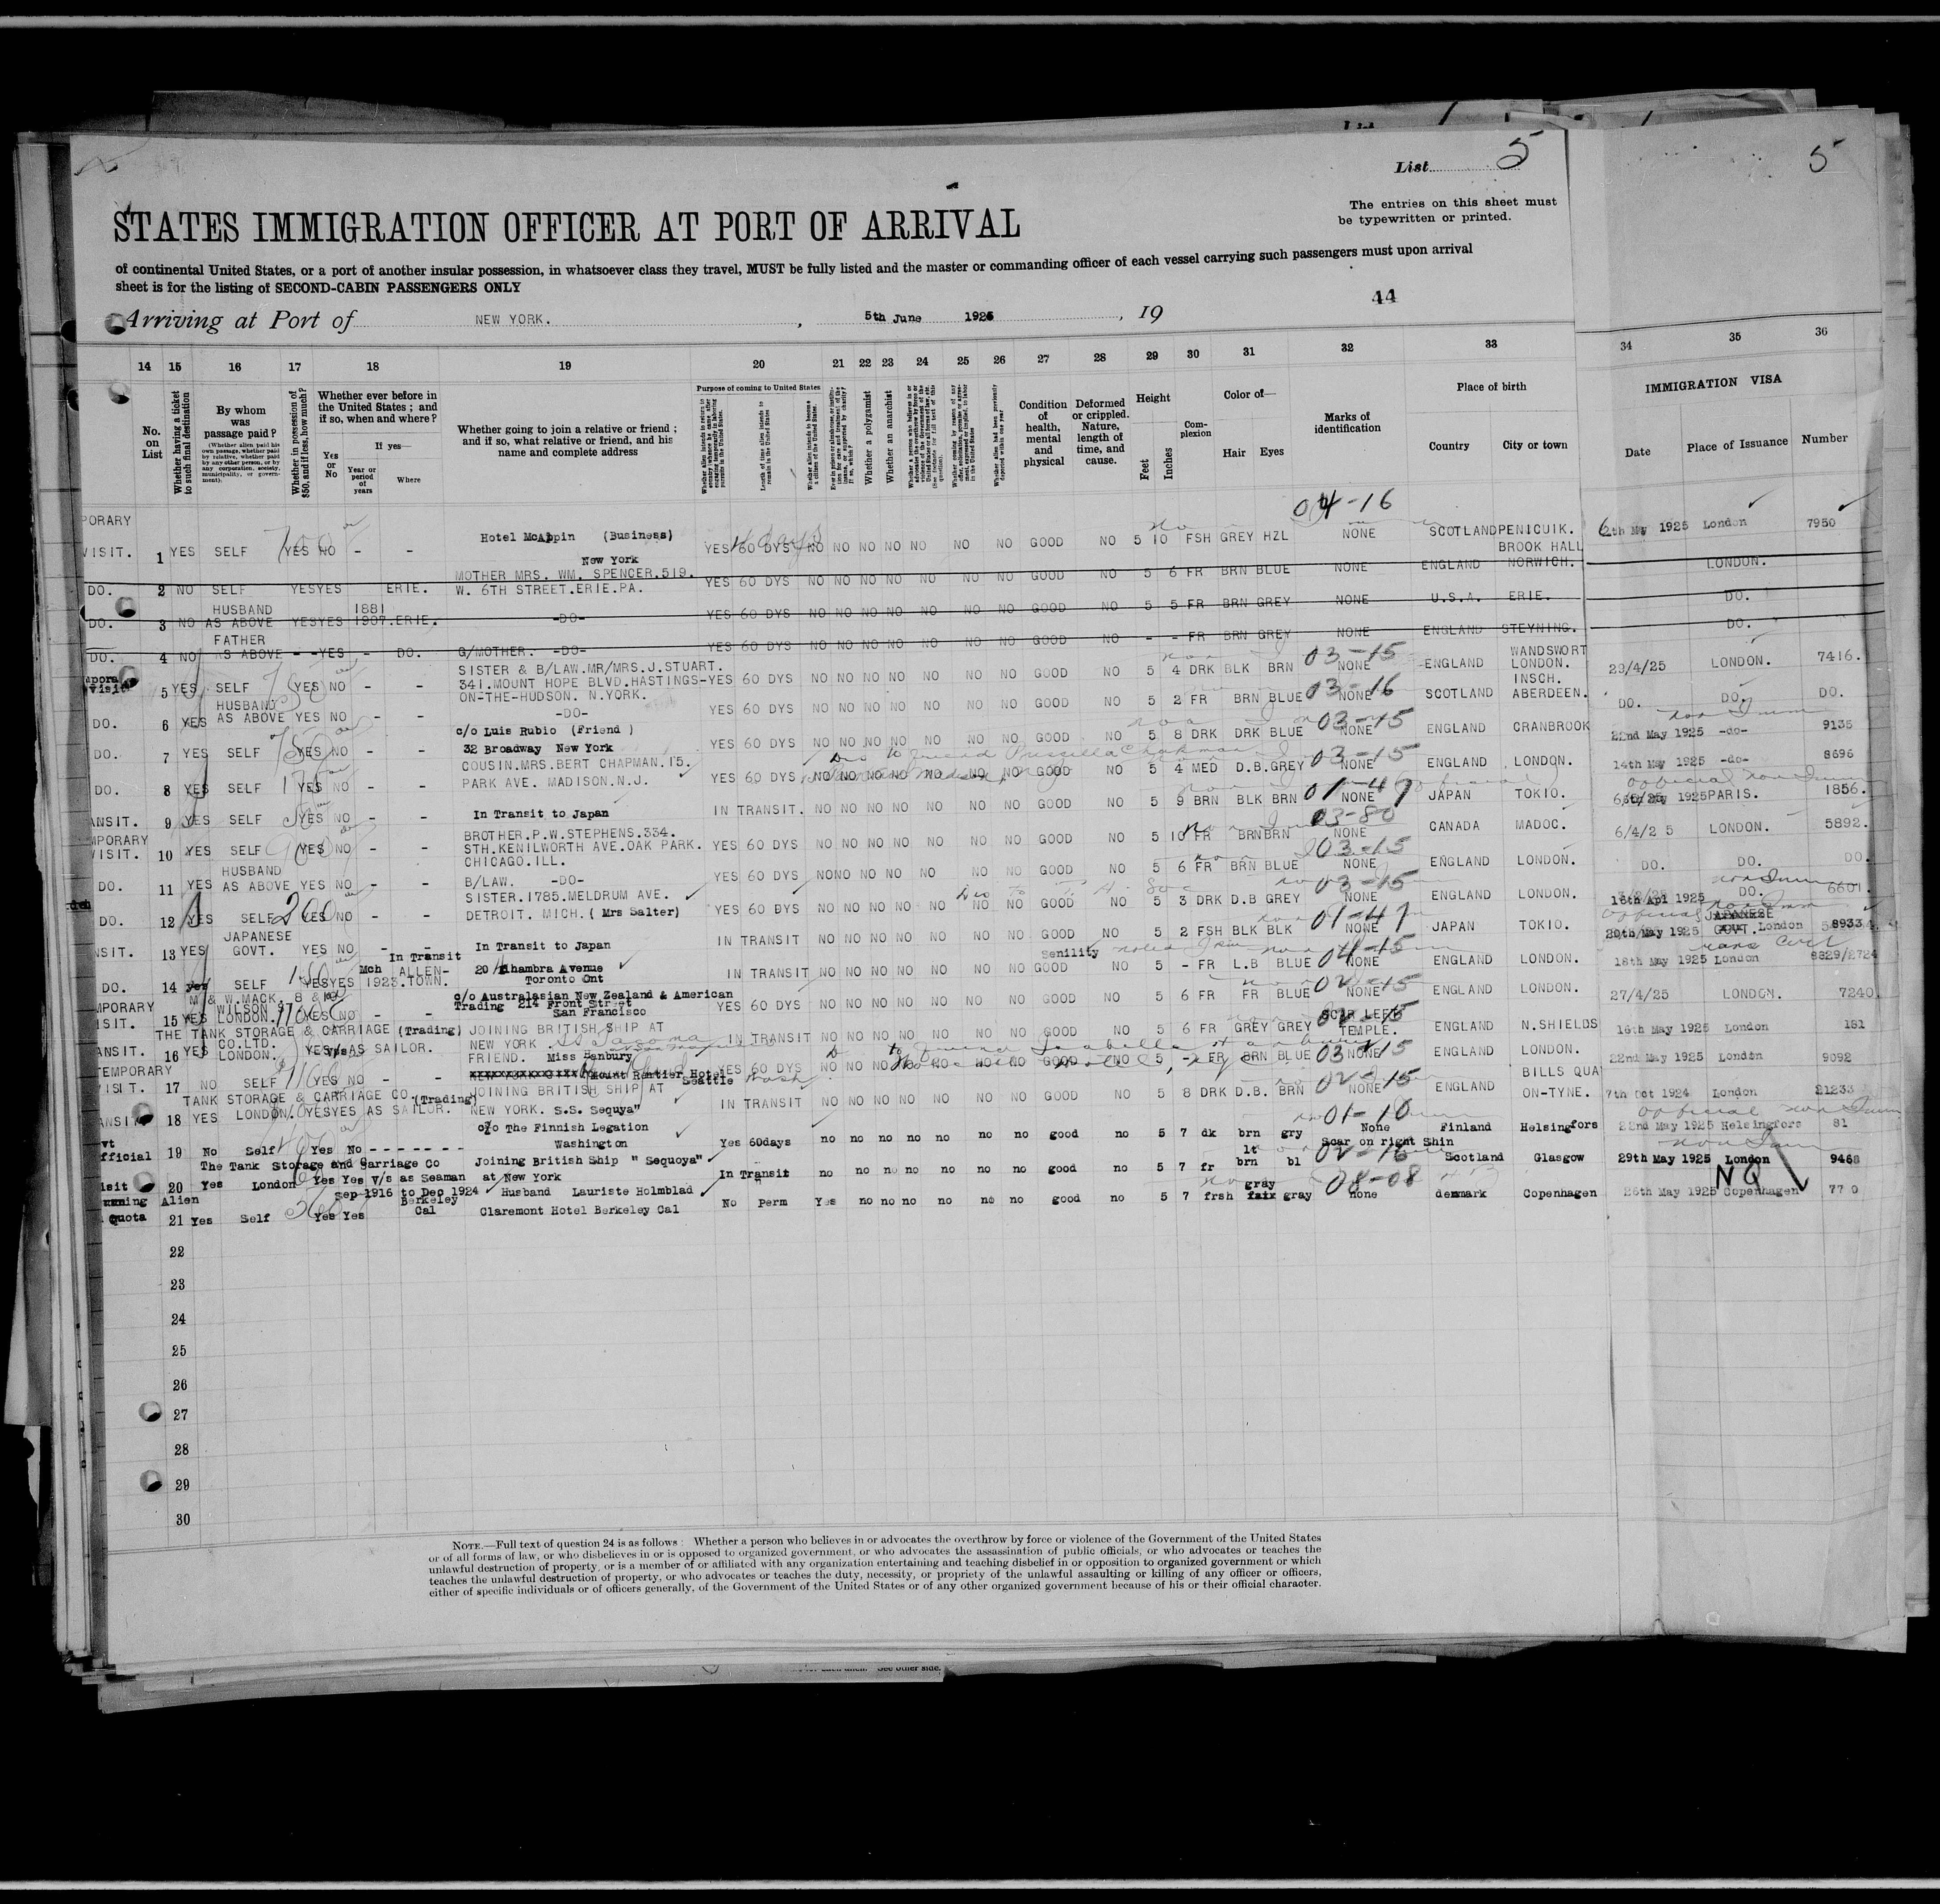 List 5
5
The entries on this sheet must
be typewritten or printed.
STATES IMMIGRATION OFFICER AT PORT OF ARRIVAL
of continental United States, or a port of another insular possession, in whatsoever class they travel, MUST be fully listed and the master or commanding officer of each vessel carrying such passengers must upon arrival
sheet is for the listing of SECOND-CABIN PASSENGERS ONLY
44
Arriving at Port of NEW YORK. , 5th June 1925 , 19
14 15 16 17 18 19 20 21 22 23 24 25 26 27 28 29 30 31 32 33 34 35 36
No. on List
Whether having a ticket to such final destination
By whom was passage paid?
(Whether alien paid his own passage, whether paid by relative, whether paid by any other person, or by any corporation, society, municipality, or government)
Whether in possession of $50, and if less, how much?
Whether ever before in the United States; and if so, when and where?
Yes or No
If yes—
Year or period of years
Where
Whether going to join a relative or friend; and if so, what relative or friend, and his name and complete address
Purpose of coming to United States
Length of time alien intends to remain in the United States
Whether alien intends to become a citizen of the United States.
Whether a polygamist
Whether an anarchist
Condition of health, mental and physical
Deformed or crippled. Nature, length of time, and cause.
Height
Feet Inches
Complexion
Color of—
Hair Eyes
Marks of identification
Place of birth
Country City or town
IMMIGRATION VISA
Date Place of Issuance Number
04-16
PORARY VISIT. 1 YES SELF YES NO - - Hotel McAlpin (Business) New York YES 60 DYS NO NO NO NO NO NO NO GOOD NO 5 10 FSH GREY HZL NONE SCOTLAND PENICUIK. 2th May 1925 London 7950
DO. 2 NO SELF YES YES ERIE. MOTHER MRS. WM. SPENCER.519. W. 6TH STREET.ERIE.PA. YES 60 DYS NO NO NO NO NO NO NO GOOD NO 5 6 FR BRN BLUE NONE ENGLAND BROOK HALL NORWICH. LONDON.
DO. 3 NO HUSBAND AS ABOVE YES YES 1881 1907.ERIE. -DO- YES 60 DYS NO NO NO NO NO NO NO GOOD NO 5 5 FR BRN GREY NONE U.S.A. ERIE. DO.
DO. 4 NO FATHER AS ABOVE - - YES - DO. G/MOTHER. -DO- YES 60 DYS NO NO NO NO NO NO NO GOOD NO - - FR BRN GREY NONE ENGLAND STEYNING. DO.
5 YES SELF YES NO - - SISTER & B/LAW.MR/MRS.J.STUART. 341.MOUNT HOPE BLVD.HASTINGS-ON-THE-HUDSON. N.YORK. YES 60 DYS NO NO NO NO NO NO NO GOOD NO 5 4 DRK BLK BRN 03-15 NONE ENGLAND WANDSWORT LONDON. 29/4/25 LONDON. 7416.
DO. 6 YES HUSBAND AS ABOVE YES NO - - -DO- YES 60 DYS NO NO NO NO NO NO NO GOOD NO 5 2 FR BRN BLUE 03-16 NONE SCOTLAND INSCH. ABERDEEN. DO. DO. DO.
DO. 7 YES SELF YES NO - - c/o Luis Rubio (Friend ) 32 Broadway New York YES 60 DYS NO NO NO NO NO NO NO GOOD NO 5 8 DRK DRK BLUE 03-15 NONE ENGLAND CRANBROOK 22nd May 1925 -do- 9135
DO. 8 YES SELF YES NO - - COUSIN.MRS.BERT CHAPMAN.15. PARK AVE. MADISON.N.J. YES 60 DYS NO NO NO NO NO NO NO GOOD NO 5 4 MED D.B.GREY 03-15 NONE ENGLAND LONDON. 14th May 1925 -do- 8696
ANSIT. 9 YES SELF YES NO - - In Transit to Japan IN TRANSIT. NO NO NO NO NO NO NO GOOD NO 5 9 BRN BLK BRN 01-47 NONE JAPAN TOKIO. May 1925 PARIS. 1856.
MPORARY VISIT. 10 YES SELF YES NO - - BROTHER.P.W.STEPHENS.334. STH.KENILWORTH AVE.OAK PARK. CHICAGO.ILL. YES 60 DYS NO NO NO NO NO NO NO GOOD NO 5 10 FR BRN BRN 03-80 NONE CANADA MADOC. 6/4/25 LONDON. 5892.
DO. 11 YES HUSBAND AS ABOVE YES NO - - B/LAW. -DO- YES 60 DYS NO NO NO NO NO NO NO GOOD NO 5 6 FR BRN BLUE 03-15 NONE ENGLAND LONDON. DO. DO. DO.
DO. 12 YES SELF 200 YES NO - - SISTER.1785.MELDRUM AVE. DETROIT. MICH.( Mrs Salter) YES 60 DYS NO NO NO NO NO NO NO GOOD NO 5 3 DRK D.B GREY 03-15 NONE ENGLAND LONDON. 16th Apl 1925 DO. 6601.
NSIT. 13 YES JAPANESE GOVT. YES NO - - In Transit to Japan IN TRANSIT NO NO NO NO NO NO NO GOOD NO 5 2 FSH BLK BLK 01-47 NONE JAPAN TOKIO. 20th May 1925 London 8933
DO. 14 yes SELF YES YES Mch 1923. In Transit ALLEN-TOWN. 20 Alhambra Avenue Toronto Ont IN TRANSIT NO NO NO NO NO NO NO GOOD Senility NO 5 - FR L.B BLUE 04-15 NONE ENGLAND LONDON. 18th May 1925 London 8829/2724
MPORARY ISIT. 15 YES M & W.MACK. WILSON LONDON. YES NO - - c/o Australasian New Zealand & American Trading 214 Front Street San Francisco YES 60 DYS NO NO NO NO NO NO NO GOOD NO 5 6 FR FR BLUE 02-15 NONE ENGLAND LONDON. 27/4/25 LONDON. 7240
ANSIT. 16 YES THE TANK STORAGE & CARRIAGE CO.LTD. LONDON. (Trading) YES AS SAILOR. JOINING BRITISH SHIP AT NEW YORK IN TRANSIT NO NO NO NO NO NO NO GOOD NO 5 6 FR GREY GREY SCAR LEFT TEMPLE. ENGLAND N.SHIELDS 16th May 1925 London 181
TEMPORARY VISIT. 17 NO SELF YES NO - - FRIEND. Miss Hanbury Mount Rantier Hotel Seattle YES 60 DYS NO NO NO NO NO NO NO GOOD NO 5 - FR BRN BLUE 03-15 NONE ENGLAND LONDON. 22nd May 1925 London 9092
ANSIT. 18 YES TANK STORAGE & CARRIAGE CO. LONDON. (Trading) YES YES AS SAILOR. JOINING BRITISH SHIP AT NEW YORK. S.S. Sequya" IN TRANSIT NO NO NO NO NO NO NO GOOD NO 5 8 DRK D.B. BRN 02-15 NONE ENGLAND BILLS QUA ON-TYNE. 7th Oct 1924 London 21233
vt fficial 19 No Self Yes No - - - - - - - c/o The Finnish Legation Washington Yes 60days no no no no no no no good no 5 7 dk brn gry 01-10 None Finland Helsingfors 22nd May 1925 Helsingfors 81
isit 20 Yes The Tank Storage and Carriage Co London Yes Yes V/s as Seaman Joining British Ship " Sequoya" at New York In Transit no no no no no no no good no 5 7 fr lt brn bl Scar on right Shin 02-16 Scotland Glasgow 29th May 1925 London 9468
Alien Quota 21 Yes Self Yes Yes Sep 1916 to Dec 1924 Berkeley Cal Husband Lauriste Holmblad Claremont Hotel Berkeley Cal No Perm Yes no no no no no no good no 5 7 frsh gray gray 08-08 none denmark Copenhagen 26th May 1925 Copenhagen NQ 77 0
22
23
24
25
26
27
28
29
30
NOTE.—Full text of question 24 is as follows: Whether a person who believes in or advocates the overthrow by force or violence of the Government of the United States
or of all forms of law, or who disbelieves in or is opposed to organized government, or who advocates the assassination of public officials, or who advocates or teaches the
unlawful destruction of property, or is a member of or affiliated with any organization entertaining and teaching disbelief in or opposition to organized government or which
teaches the unlawful destruction of property, or who advocates or teaches the duty, necessity, or propriety of the unlawful assaulting or killing of any officer or officers,
either of specific individuals or of officers generally, of the Government of the United States or of any other organized government because of his or their official character.
See other side.